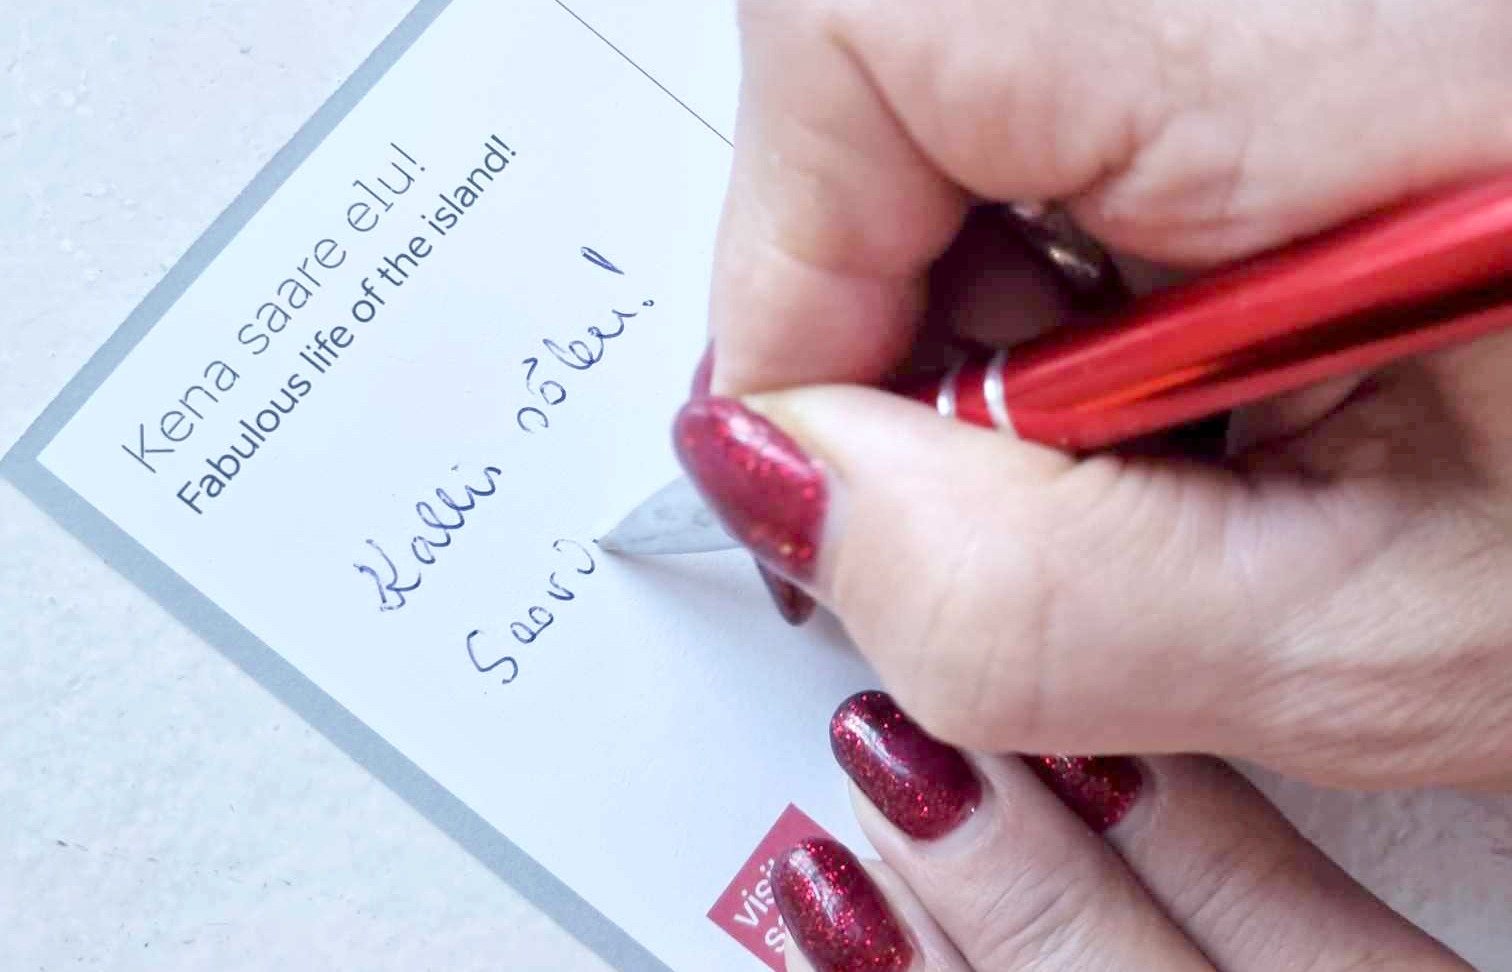 Kena saare elu!
Fabulous life of the island!
Kalli sõber!
Saare
visit